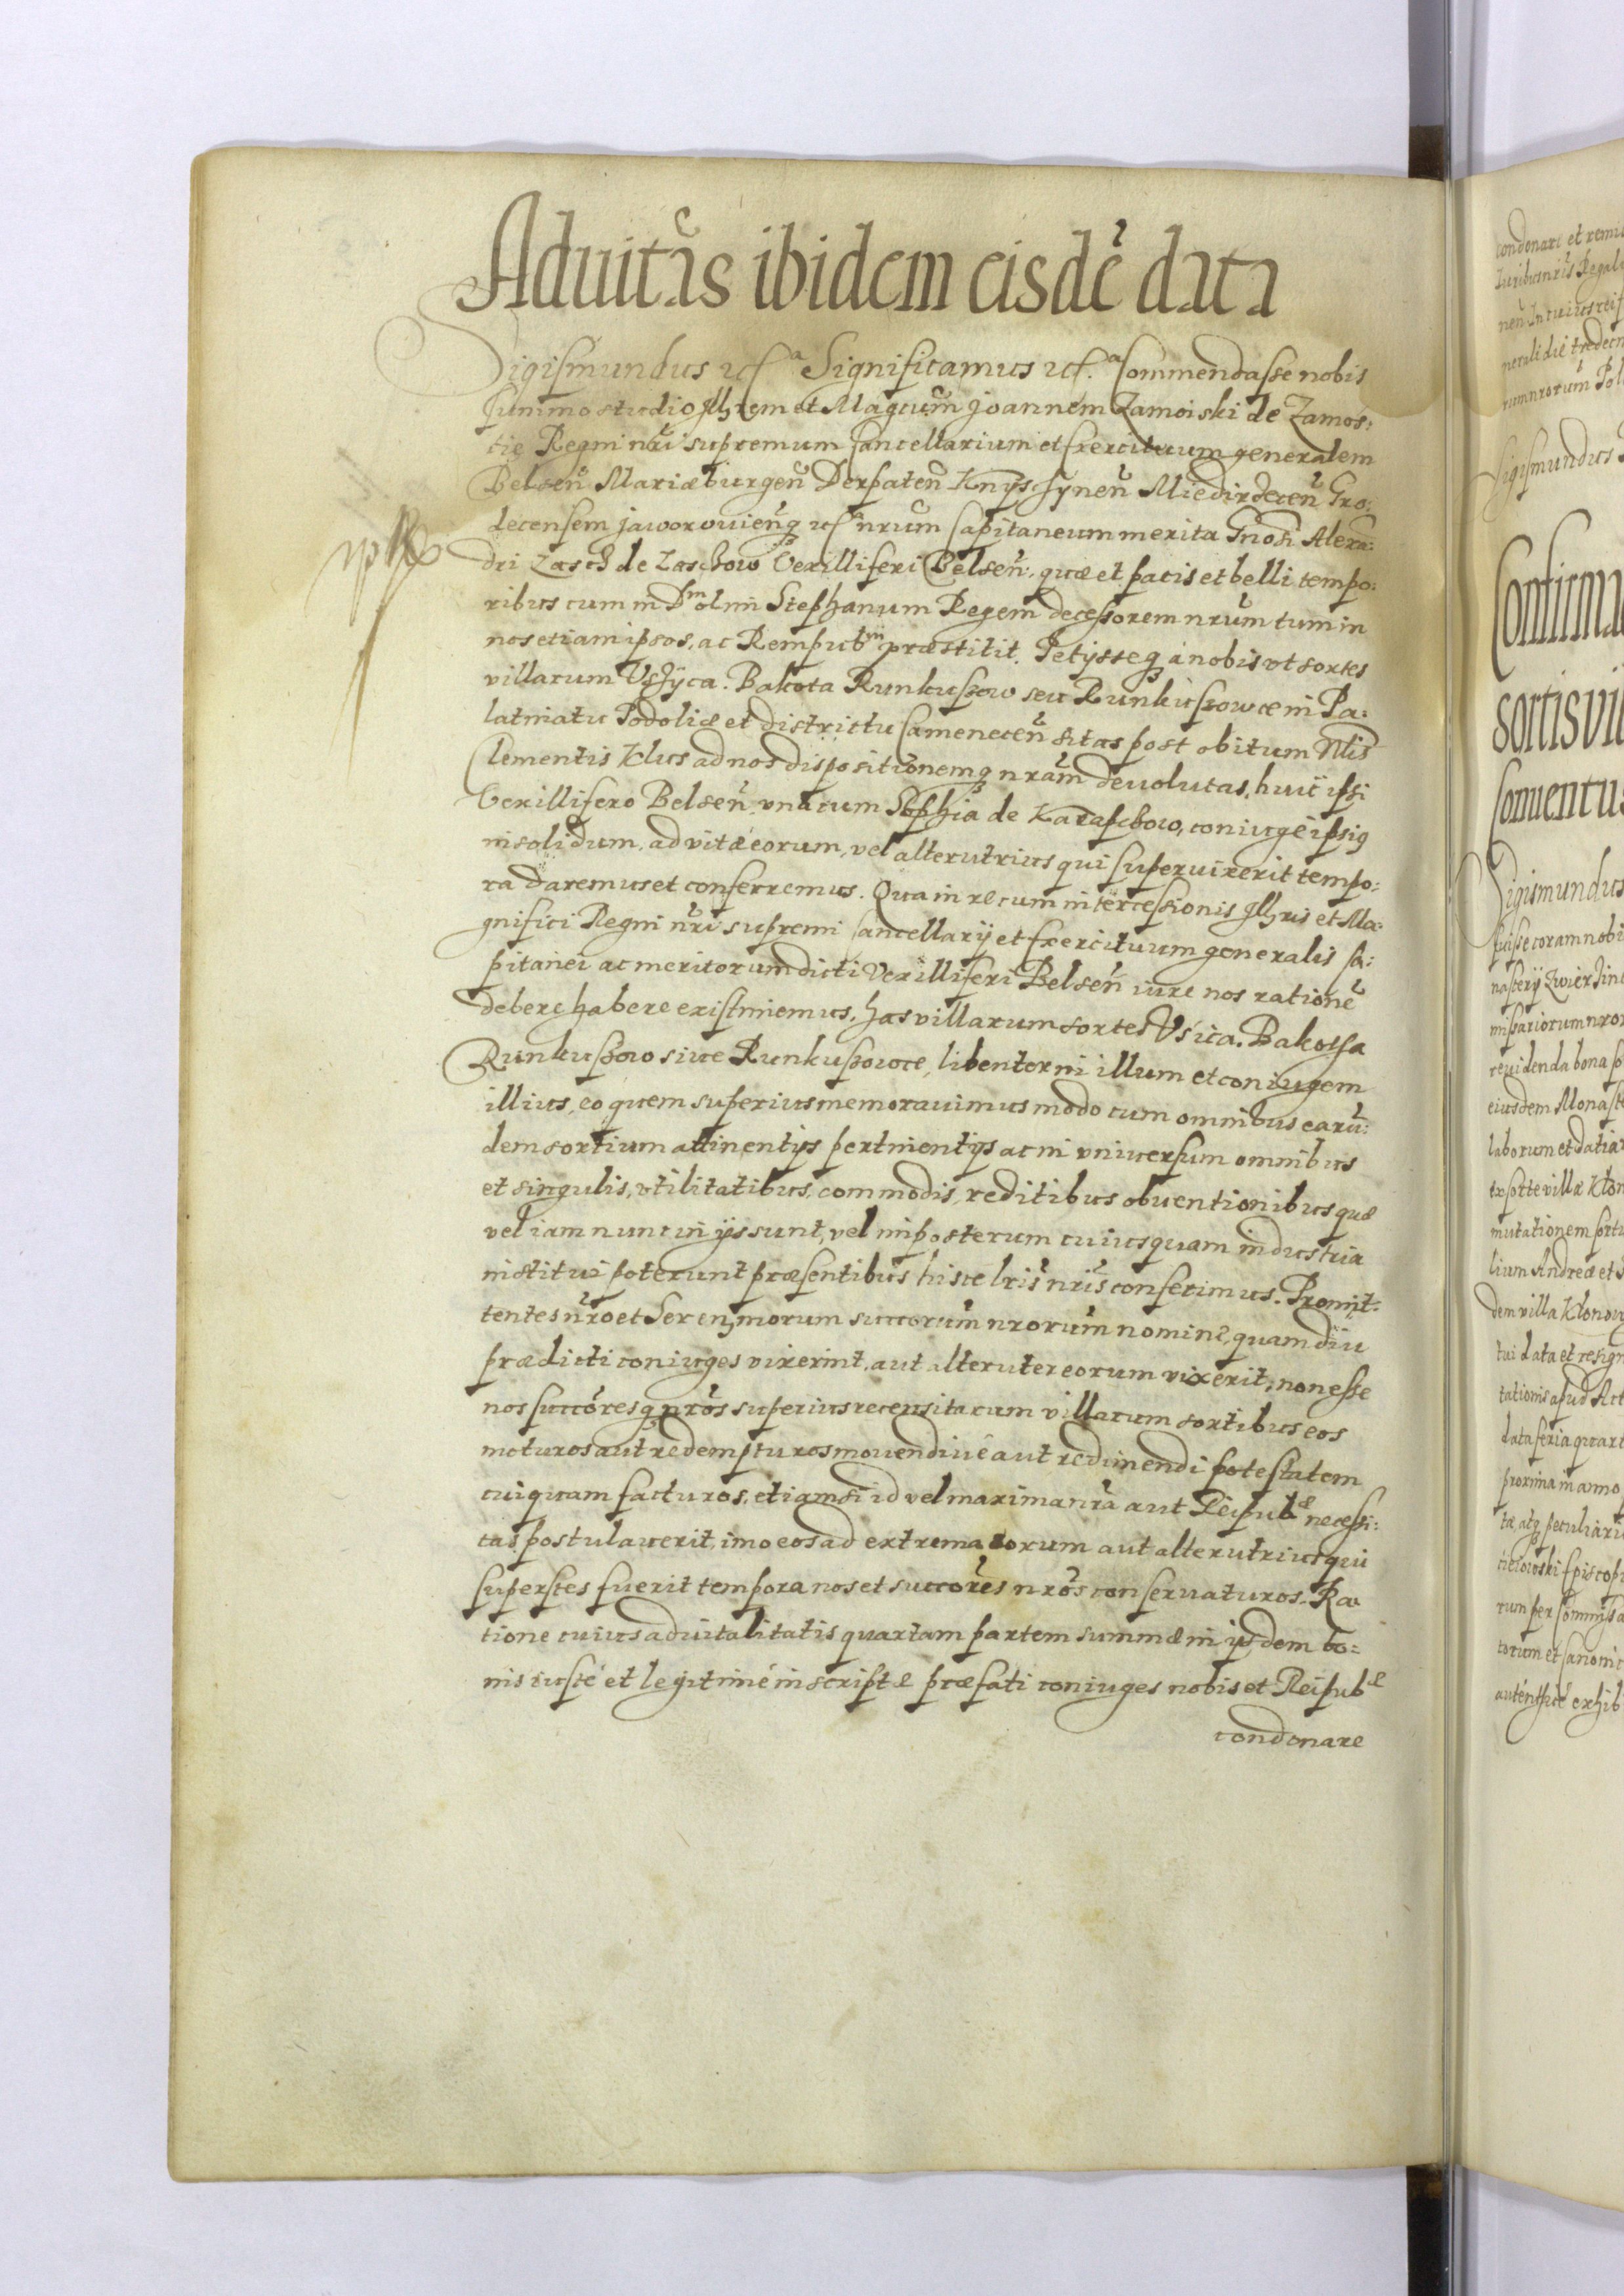 Aduitas ibidem eisdē data
Sigismundus etc.ᵃ Significamus etc.ᵃ Commendasse nobis
summo studio Illrem et Magcum Joannem Zamoiski de Zamos:
tie Regni nri supremum Cancellarium et Exercituum generalem
Belsen̄ Mariæburgen̄ Derpaten̄ Knyschynen̄ Miedirzecen̄ Gro:
decensem jaworouienq̨ etc nrum Capitaneum merita Gnosi Alexā:
dri Zasch de Zaschow Vexilliferi Belsen̄. quæ et pacis et belli tempo:
ribus cum in Dᵐ olim Stephanum Regem decessorem nrum tum in
nos etiam ipsos, ac Rempubᵐ præstitit. Petysseq̨ à nobis vt sortes
villarum Vschyca. Bakota Runkuszow seu Runkuszowce in Pa:
latinatu Podoliæ et districtu Camenecen̄ sitas post obitum Nlis
Clementis Klus ad nos dispositionemq̨ nram deuolutas, huic ipsi
Vexillifero Belsen̄ vna cum Sophia de Karapchow, coniuge ipsiq
in solidum, ad vitæ eorum, vel alterutrius qui superuixerit tempo:
ra daremus et conferremus. Qua in re cum intercessionis Illris et Ma:
gnifici Regni nri supremi Cancellarij et Exercituum generalis Ca:
pitanei ac meritorum dicti Vexilliferi Belsen̄ iure nos rationē
debere habere existimemus, has villarum sortes Vsica. Bakotha
Runkuszow siue Runkuszowce, libenter ni illum et coniugem
illius, eo quem superius memorauimus modo cum omnibus earū:
dem sortium attinentijs pertinentijs ac in vniuersum omnibus
et singulis, vtilitatibus, commodis, reditibus obuentionibus quæ
vel iam nunc in ijs sunt, vel in posterum cuiusquam industria
institui poterunt præsentibus hisce lris nris conferimus. Promit:
tentes nro et Serenmorum succorum nrorum nomine, quam diu
prædicti coniuges vixerint, aut alteruter eorum vixerit, non esse
nos succoresq̨ nros superius recensitarum villarum sortibus eos
moturos aut redempturos mouendiue aut redimendi potestatem
cuiquam facturos, etiamsi id vel maxima nra aut Reipubᵉ necessi:
tas postulauerit, imo eos ad extrema eorum aut alterutrius qui
superstes fuerit tempora nos et succores nros conseruaturos. Ra
tione cuius aduitalitatis quartam partem summæ in ijsdem bo=
nis iuste et legitimè inscriptæ præfati coniuges nobis et Reipubᵉ
condonare
condonare et remi
Juribus nris Regal
nen̄ In cuius rei f
nerali die tredecim
rum nrorum Pol
Sigismundus
Confirma
sortis vil
Conuentus
Sigismundus
fuisse coram nobi
nasterij Zwierzin
missariorum nro
reuidenda bona
eiusdem Monaste
laborum et datiar
ex sorte villæ Klon
mutationem
lium Andreæ et
dem villa Klonow
tui data et resign
tationis apud Act
data feria quart
proxima in anno
tæ, atq̨ peculiari
Episcop
torum et Canonic
autenthice exhib